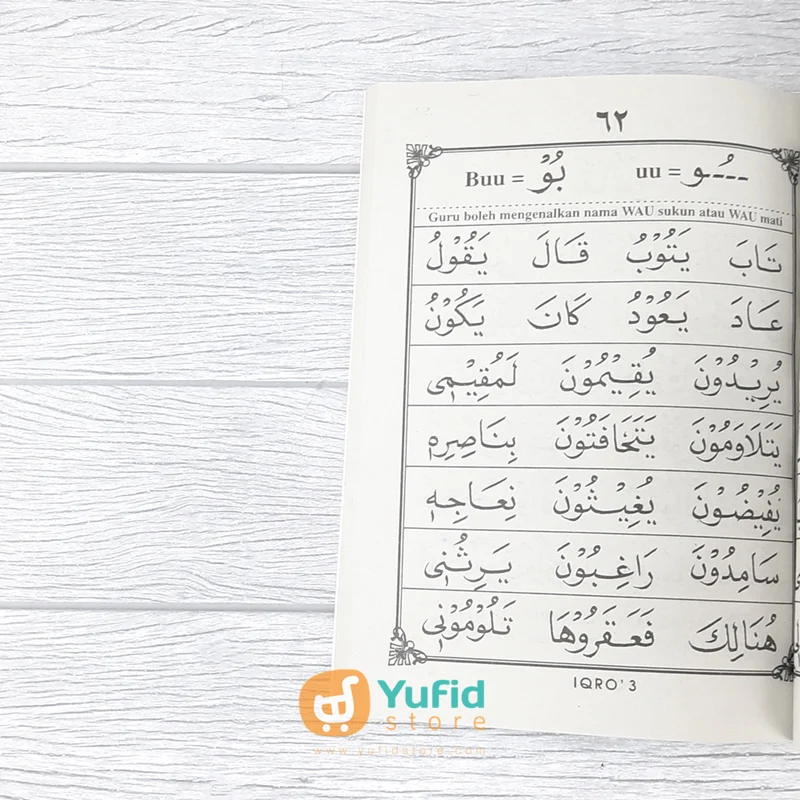 ٦٢
uu = ـُـو Buu = بُوْ
Guru boleh mengenalkan nama WAU sukun atau WAU mati
تَابَ يَتُوْبُ قَالَ يَقُوْلُ
عَادَ يَعُوْدُ كَانَ يَكُوْنُ
يُرِيْدُوْنَ يُقِيْمُوْنَ لَمُقِيْمِى
يَتَلَاوَمُوْنَ يَتَخَافَتُوْنَ بِنَاصِرِهِ
يُفِيْضُوْنَ يُغِيْثُوْنَ نِعَاجِهِ
سَامِدُوْنَ رَاغِبُوْنَ يَرِثُنِى
هُنَالِكَ فَعَقَرُوْهَا تَلُوْمُوْنِى
IQRO' 3
Yufid
store
www.yufidstore.com